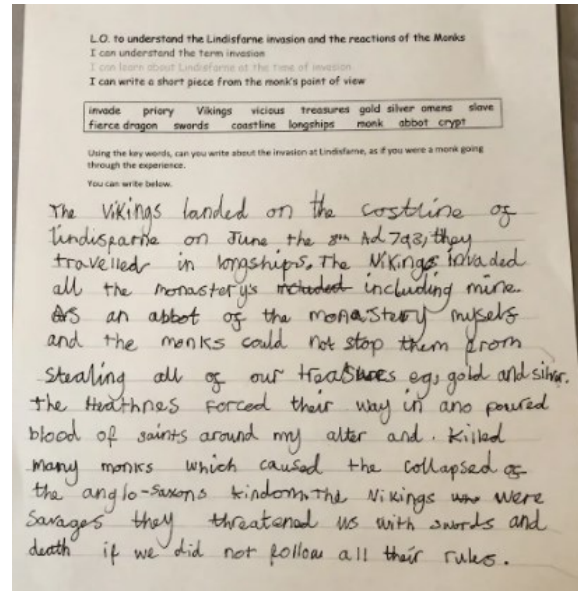 L.O. to understand the Lindisfarne invasion and the reactions of the Monks
I can understand the term invasion
I can learn about Lindisfarne at the time of invasion.
I can write a short piece from the monk's point of view
invade priory Vikings vicious treasures gold silver omens slave
fierce dragon swords coastline longships monk abbot crypt
Using the key words, can you write about the invasion at Lindisfarne, as if you were a monk going
through the experience.
You can write below.
The Vikings landed on the costline of
lindisparne on June the 8th Ad 793, they
travelled in longships. The Nikings invaded
all the monastery's included including mine.
As an abbot of the monastery myself
and the monks could not stop them from
stealing all of our treasures eg, gold and silver.
The Heathnes forced their way in and poured
blood of saints around my alter and. killed
many monks which caused the collapsed of
the anglo-saxons kindom. The Nikings who were
savages they threatened us with swords and
death if we did not follow all their rules.